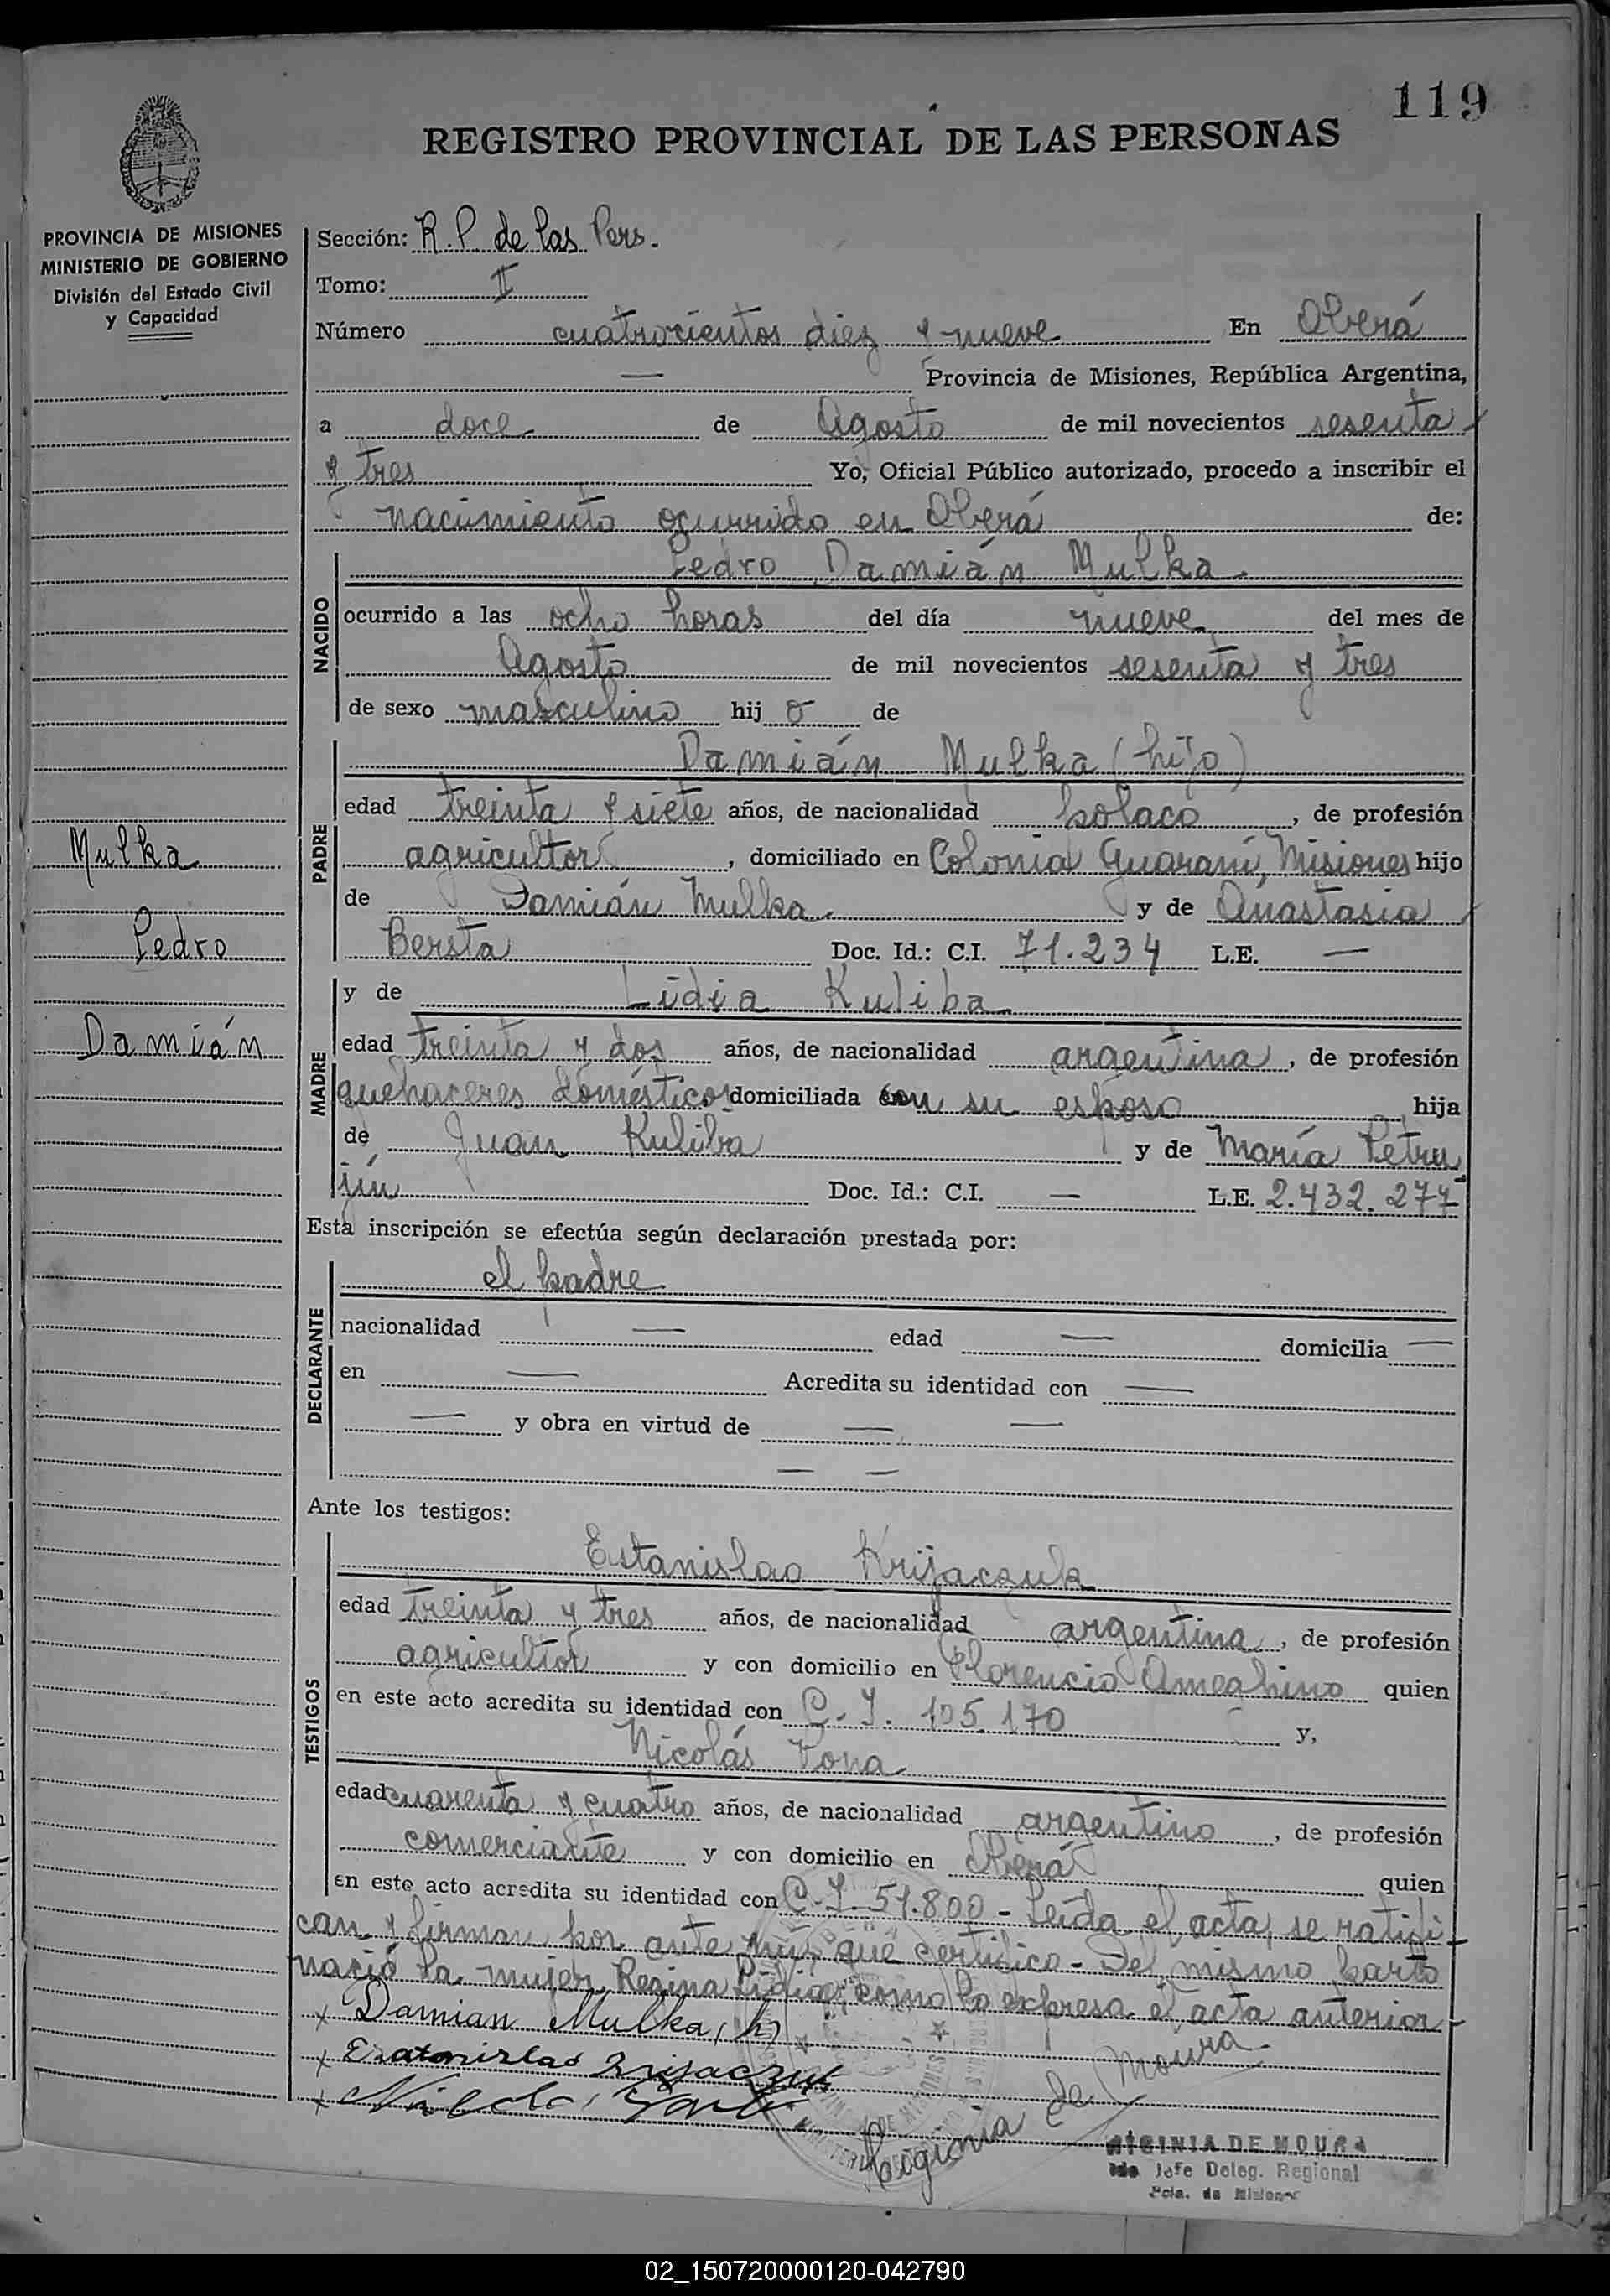 119
REGISTRO PROVINCIAL DE LAS PERSONAS
PROVINCIA DE MISIONES
MINISTERIO DE GOBIERNO
División del Estado Civil
y Capacidad
Mulka
Pedro
Damián
Sección: R.P. de las Pers.
Tomo: II
Número cuatrocientos diez y nueve En Oberá
— Provincia de Misiones, República Argentina,
a doce de Agosto de mil novecientos sesenta
y tres Yo, Oficial Público autorizado, procedo a inscribir el
nacimiento ocurrido en Oberá de:
NACIDO
Pedro Damián Mulka
ocurrido a las ocho horas del día nueve del mes de
Agosto de mil novecientos sesenta y tres
de sexo masculino hij o de
PADRE
Damián Mulka (hijo)
edad treinta y siete años, de nacionalidad polaco, de profesión
agricultor, domiciliado en Colonia Guaraní, Misiones hijo
de Damián Mulka y de Anastasia
Bersta Doc. Id.: C.I. 71.234 L.E. —
MADRE
y de Lidia Kuliba
edad treinta y dos años, de nacionalidad argentina, de profesión
quehaceres domésticos domiciliada con su esposo hija
de Juan Kuliba y de María Petru
jin Doc. Id.: C.I. — L.E. 2.432.277
Esta inscripción se efectúa según declaración prestada por:
DECLARANTE
el padre
nacionalidad — edad — domicilia —
en — Acredita su identidad con —
— y obra en virtud de — —
— —
Ante los testigos:
TESTIGOS
Estanislao Krijaczuk
edad treinta y tres años, de nacionalidad argentina, de profesión
agricultor y con domicilio en Florencio Ameghino quien
en este acto acredita su identidad con C.I. 105.170 y,
Nicolás Pona
edad cuarenta y cuatro años, de nacionalidad argentino, de profesión
comerciante y con domicilio en Oberá quien
en este acto acredita su identidad con C.I. 51.800 - Leída el acta, se ratifi
can y firman por ante mí, que certifico - Del mismo parto
nació la mujer Regina Lidia, como lo expresa el acta anterior -
x Damian Mulka (h)
x Estanislao Krijaczuk
x
de Moura
VIRGINIA DE MOURA
Jefe Deleg. Regional
Pcia. de Misiones
02_150720000120-042790